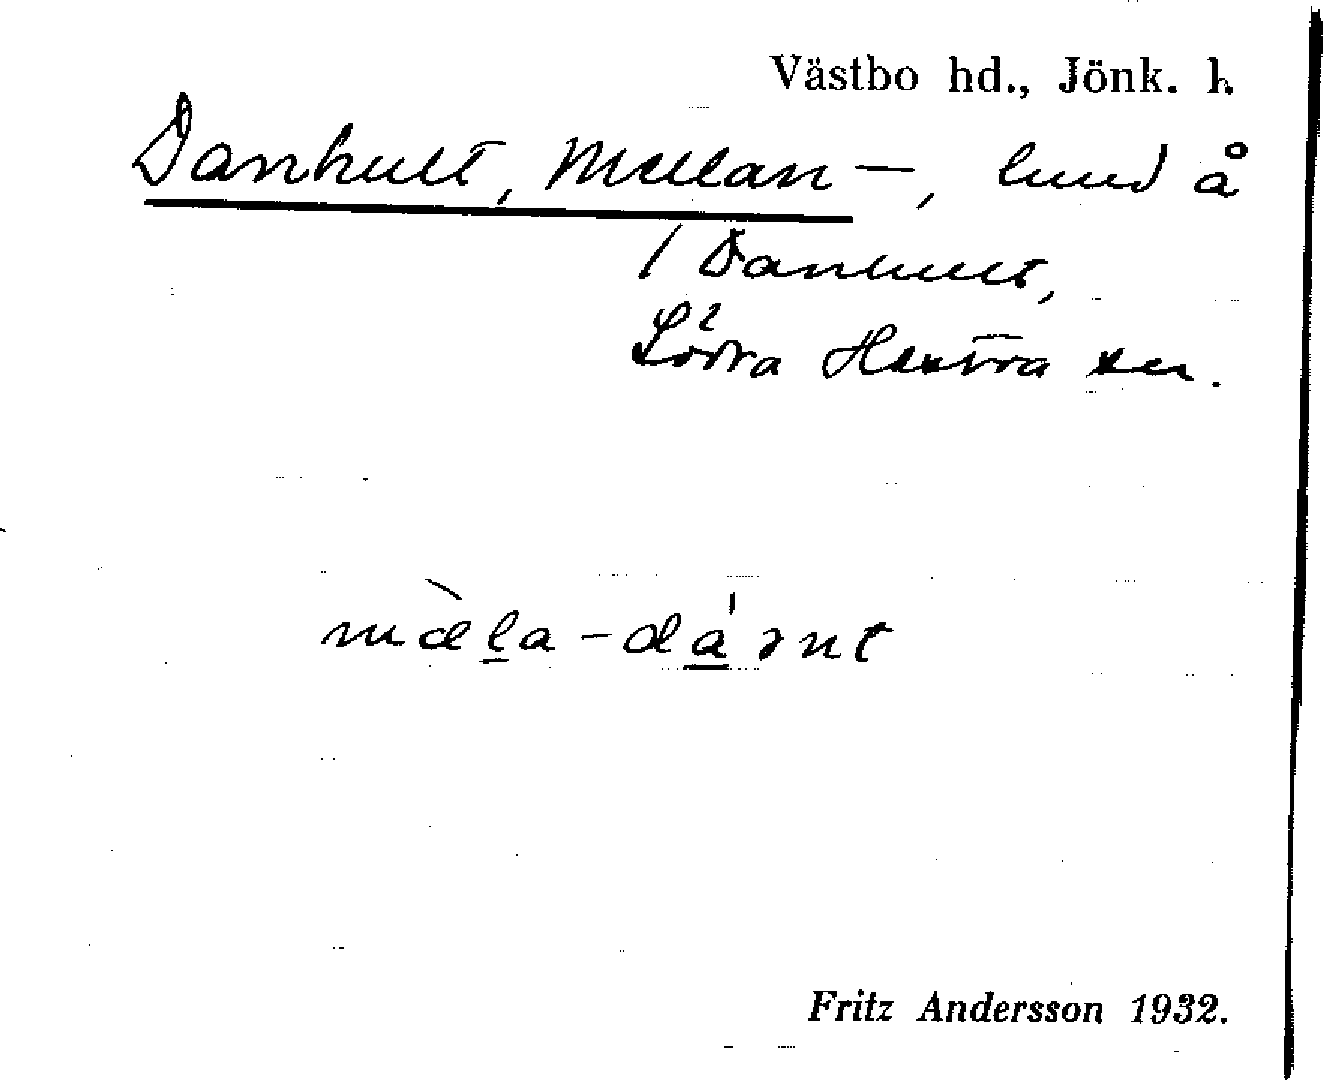 Västbo hd., Jönk. l.
Danhult, Mellan –, hmd å
/ Danhult,
Södra Hestra sn.
mæla-dánt
Fritz Andersson 1932.